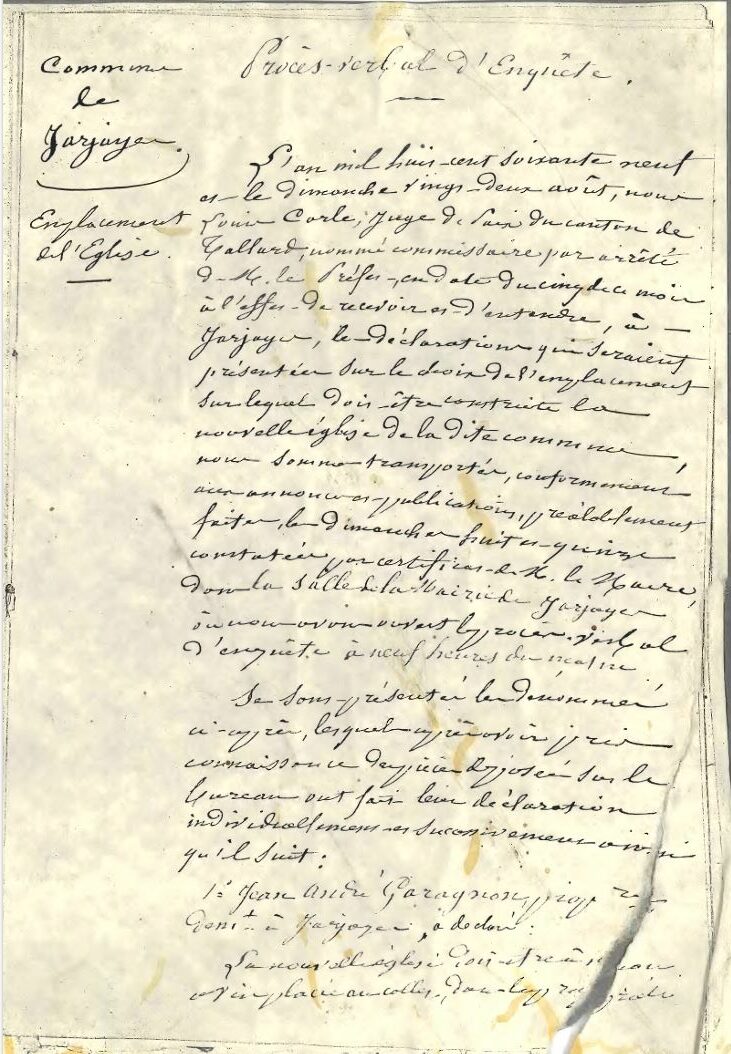 Commune
de
Jarjayes.
Emplacement
de l'Eglise.
Procès-verbal d'Enquête.
L'an mil huit cent soixante neuf
et le dimanche vingt-deux août, nous
Louis Carle, Juge de Paix du canton de
Tallard, nommé commissaire par arrêté
de M. le Préfet, en date du cinq de ce mois
à l'effet de recevoir et d'entendre, à
Jarjayes, les déclarations qui seraient
présentées sur le choix de l'emplacement
sur lequel doit être construite la
nouvelle église de la dite commune,
nous sommes transportés, conformément
aux annonces et publications, préalablement
faites, les dimanches huit et quinze
constatées par certificat de M. le Maire,
dans la salle de la Mairie de Jarjayes
où nous avons ouvert le procès-verbal
d'enquête à neuf heures du matin
Se sont présentés les dénommés
ci-après, lesquels après avoir pris
connaissance des pièces déposées sur le
bureau ont fait leur déclaration
individuellement et successivement ainsi
qu'il suit:
1° Jean André Garagnon,
domt à Jarjayes, a déclaré:
La nouvelle église doit être à
en place au colles, dans la propriété